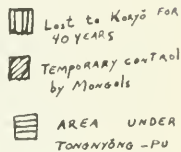 Lost to Koryŏ FOR
40 YEARS
TEMPORARY CONTROL
by Mongols
AREA UNDER
TONGNYŎNG -PU